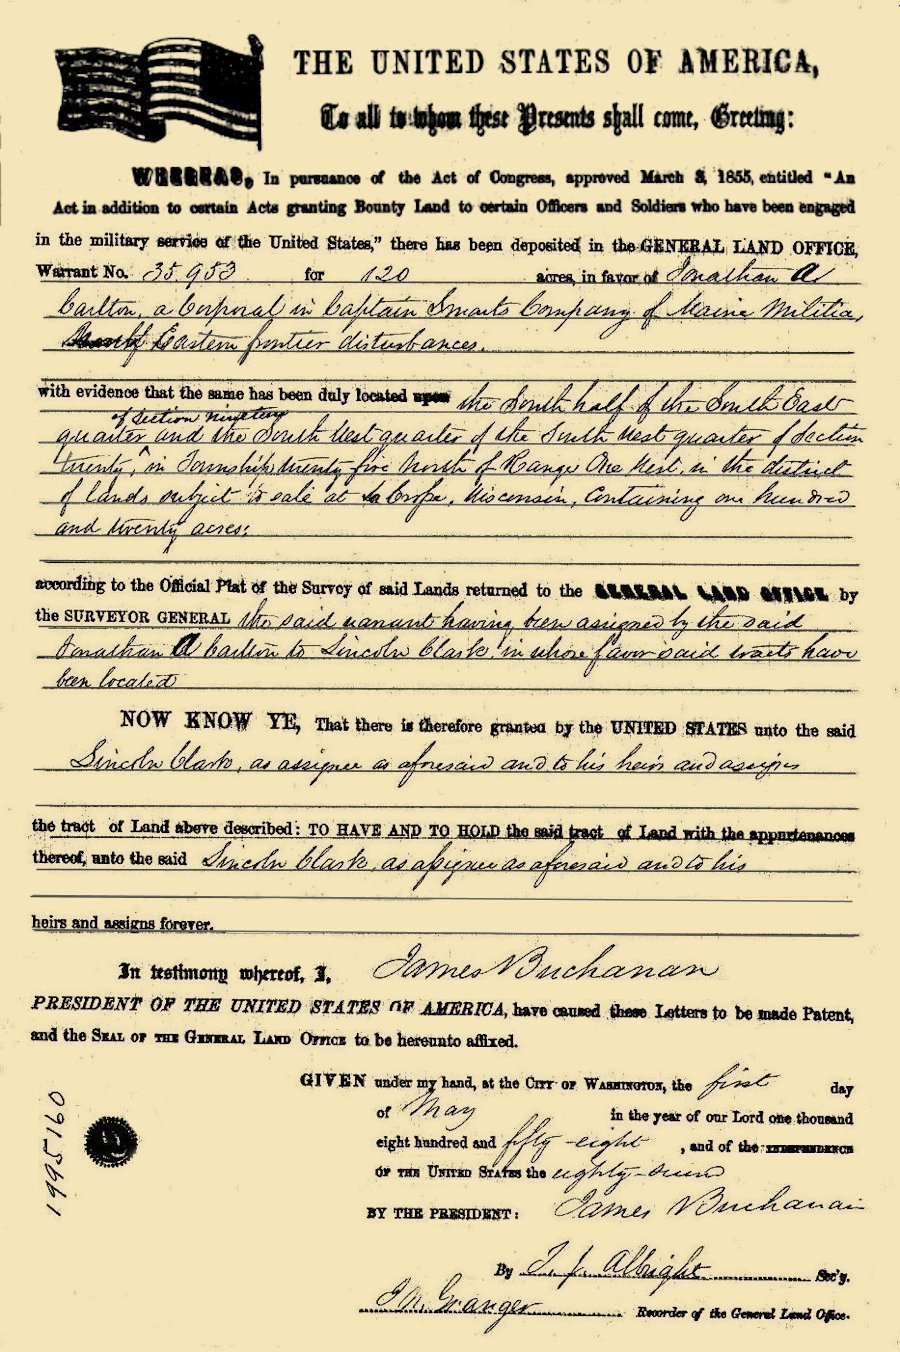 THE UNITED STATES OF AMERICA,
To all to whom these Presents shall come, Greeting:
WHEREAS, In pursuance of the Act of Congress, approved March 3, 1855, entitled "An
Act in addition to certain Acts granting Bounty Land to certain Officers and Soldiers who have been engaged
in the military service of the United States," there has been deposited in the GENERAL LAND OFFICE,
Warrant No. 35.953 for 120 acres, in favor of Jonathan A
Carlton, a Corporal in Captain Smarts Company of Maine Militia,
Eastern frontier disturbances.
with evidence that the same has been duly located upon the South half of the South East
of Section nineteen
quarter and the South West quarter of the South West quarter of Section
twenty, in Township twenty five North of Range One West, in the district
of lands subject to sale at La Crosse, Wisconsin, Containing one hundred
and twenty acres:
according to the Official Plat of the Survey of said Lands returned to the GENERAL LAND OFFICE by
the SURVEYOR GENERAL the said warrant having been assigned by the said
Jonathan A Carlton to Lincoln Clark, in whose favor said tracts have
been located
NOW KNOW YE, That there is therefore granted by the UNITED STATES unto the said
Lincoln Clark, as assignee as aforesaid and to his heirs and assigns
the tract of Land above described: TO HAVE AND TO HOLD the said tract of Land with the appurtenances
thereof, unto the said Lincoln Clark, as assignee as aforesaid and to his
heirs and assigns forever.
In testimony whereof, I, James Buchanan
PRESIDENT OF THE UNITED STATES OF AMERICA, have caused these Letters to be made Patent,
and the SEAL OF THE GENERAL LAND OFFICE to be hereunto affixed.
GIVEN under my hand, at the CITY OF WASHINGTON, the first day
of May in the year of our Lord one thousand
eight hundred and fifty-eight, and of the INDEPENDENCE
OF THE UNITED STATES the eighty-second
BY THE PRESIDENT: James Buchanan
By T. J. Albright Sec'y.
J. N. Granger Recorder of the General Land Office.
1995160